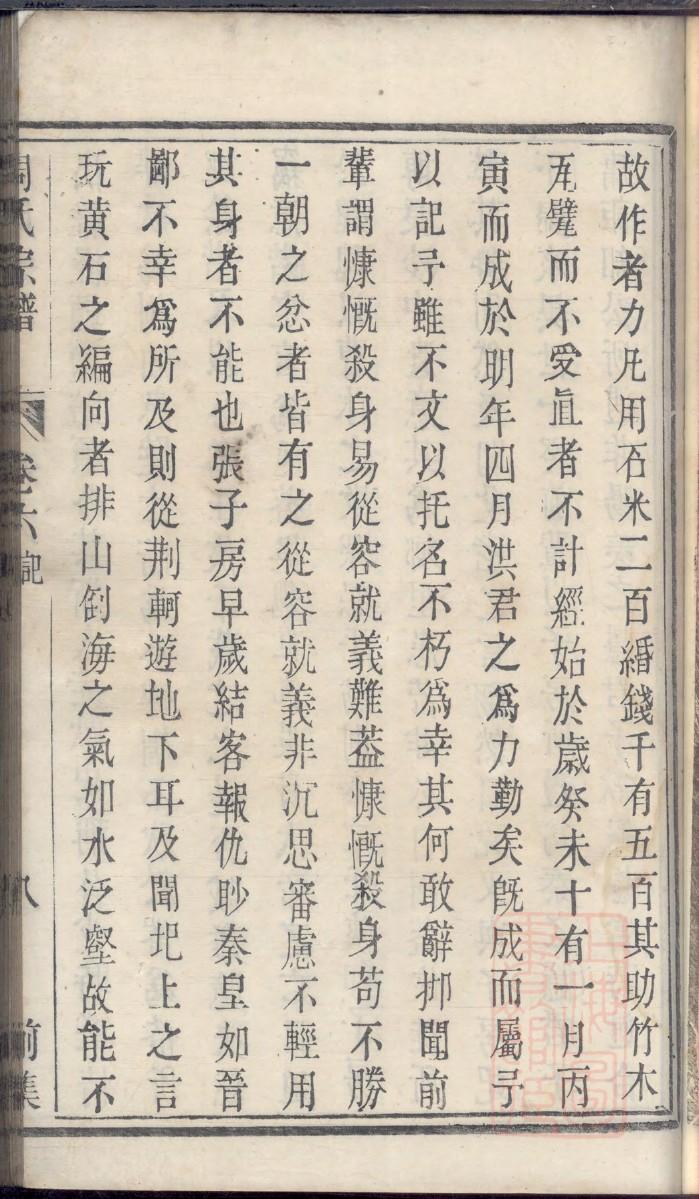 故作者力凡用石米二百緡錢千有五百其助竹木
瓦甓而不受直者不計經始於歲癸未十有一月丙
寅而成於明年四月洪君之爲力勤矣旣成而屬予
以記予雖不文以托名不朽爲幸其何敢辭抑聞前
輩謂慷慨殺身易從容就義難葢慷慨殺身苟不勝
一朝之忿者皆有之從容就義非沉思審慮不輕用
其身者不能也張子房早歲結客報仇眇秦皇如晉
鄙不幸爲所及則從荆軻遊地下耳及聞圯上之言
玩黄石之編向者排山倒海之氣如水泛壑故能不
周氏宗譜
卷六
記
八
前集